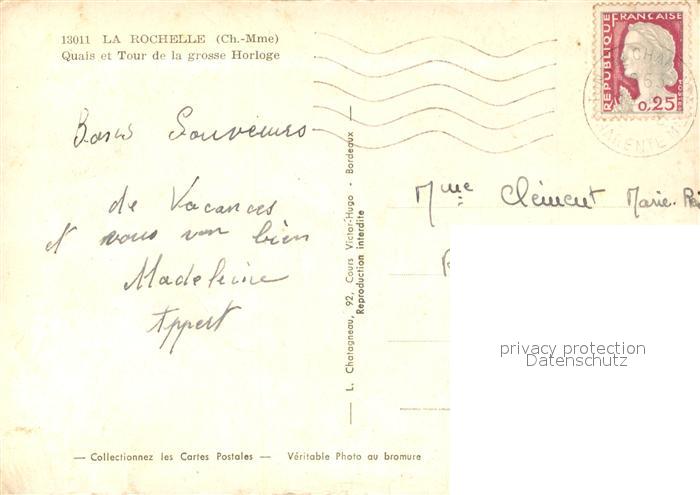 13011 LA ROCHELLE (Ch.-Mme)
Quais et Tour de la grosse Horloge
Bons Souvenirs
de Vacances
et nous van bien
Madeleine
Appert
L. Chatagneau, 92, Cours Victor-Hugo - Bordeaux
Reproduction interdite
REPUBLIQUE FRANÇAISE
POSTES
0,25
Mme Clément Marie-
privacy protection
Datenschutz
— Collectionnez les Cartes Postales — Véritable Photo au bromure